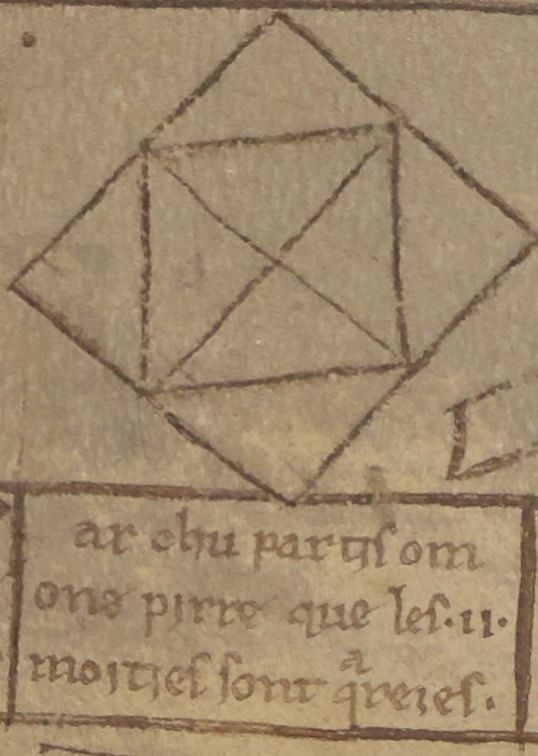 ar chu partist om
one pirre que les .ii.
moities sont qareies.